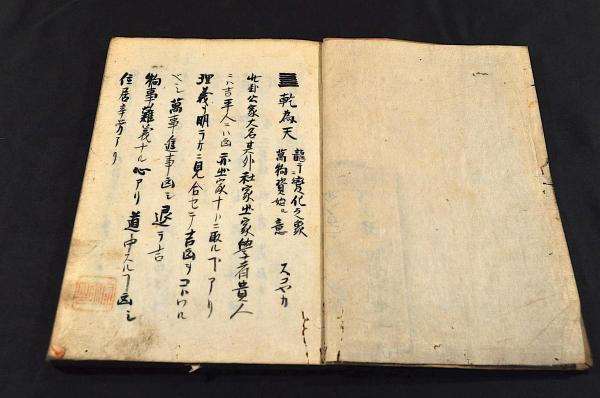 ䷀ 乾為天
龍ヲ變化之象
萬物資始ノ意 スコヤカ
此卦公家大名其外社家出家學者貴人
ニハ吉平人ニハ凶亦出家ナトニ取ルヿアリ
理義ヲ明ラケニ見合セテ吉凶ヲコトハル
ベシ萬事進事凶シ退テ吉
物事難義ナル心アリ道中スルヿ凶シ
住居辛労アリ